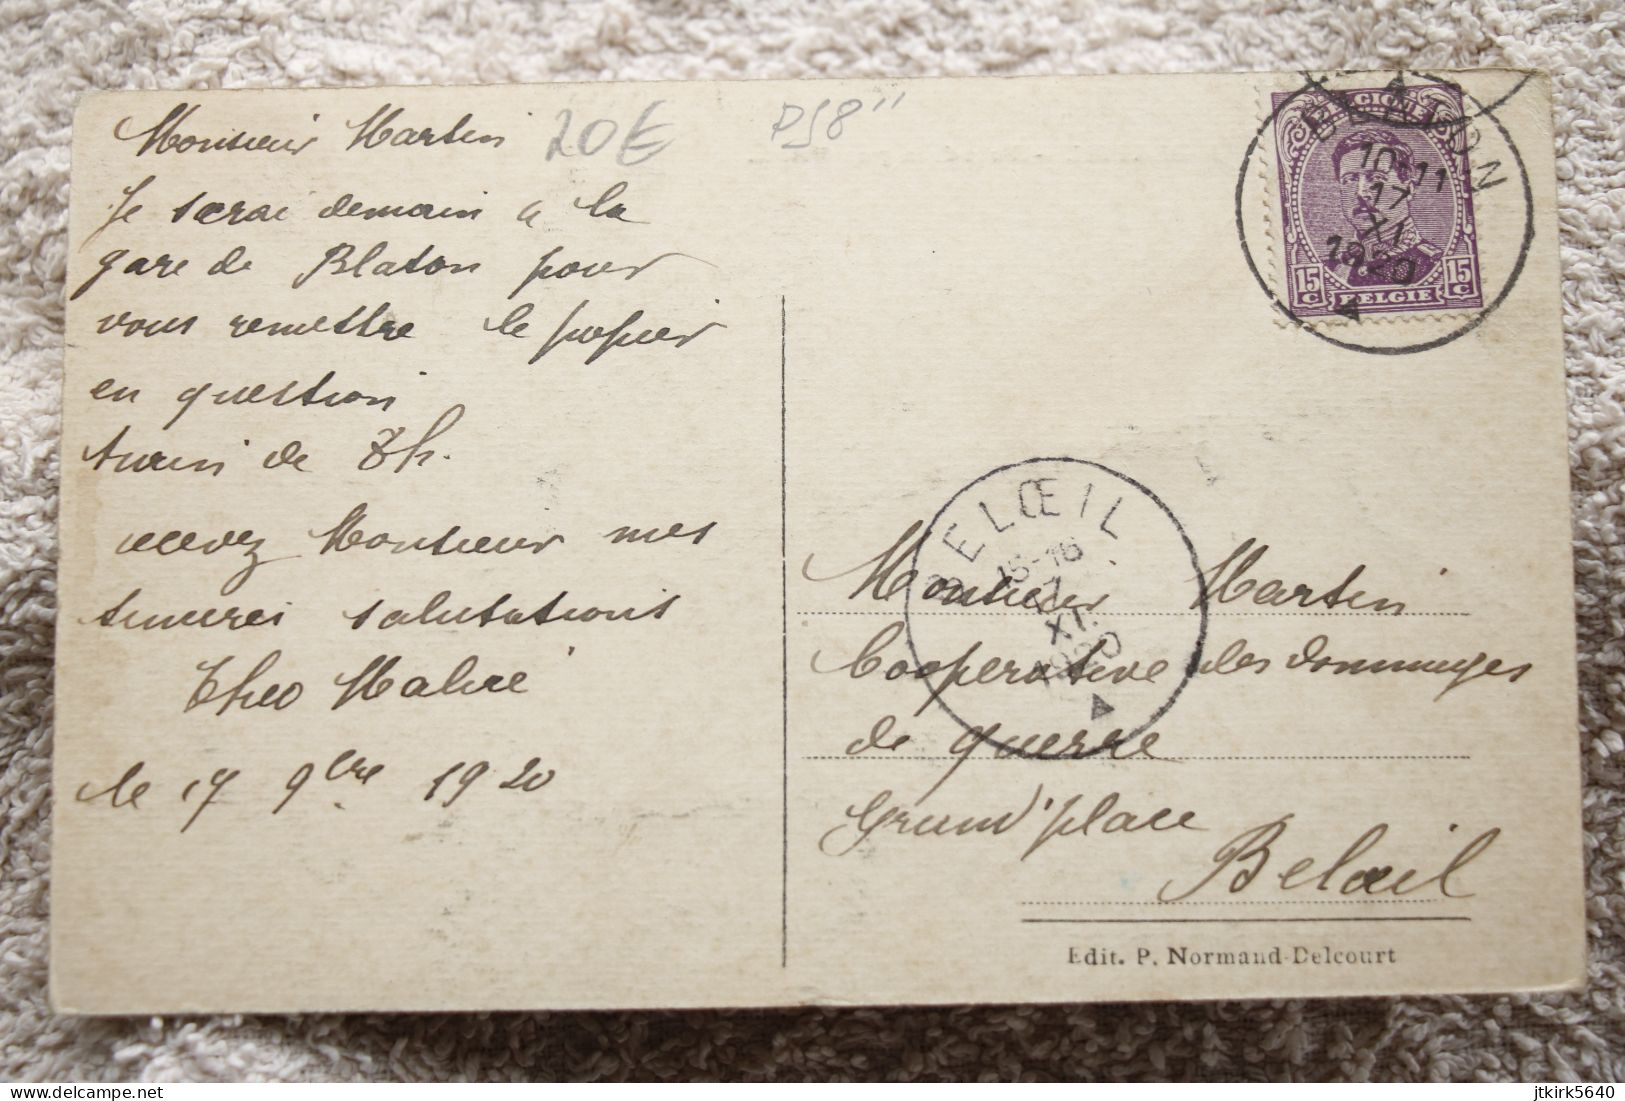 Monsieur Martin
20€
PS8"
Je serai demain à la
gare de Blaton pour
vous remettre le papier
en question
de Th.
recevez Monsieur mes
salutations
Theo Mahié
le 17 9bre 1920
BLATON
10-11
17
XI
1920
BELGIQUE
15 C
15 C
BELGIE
BELŒIL
15-16
17
XI
1920
Monsieur Martin
Cooperative des dommages
de guerre
Grand'place
Belœil
Edit. P. Normand-Delcourt
delcampe.net
jtkirk5640